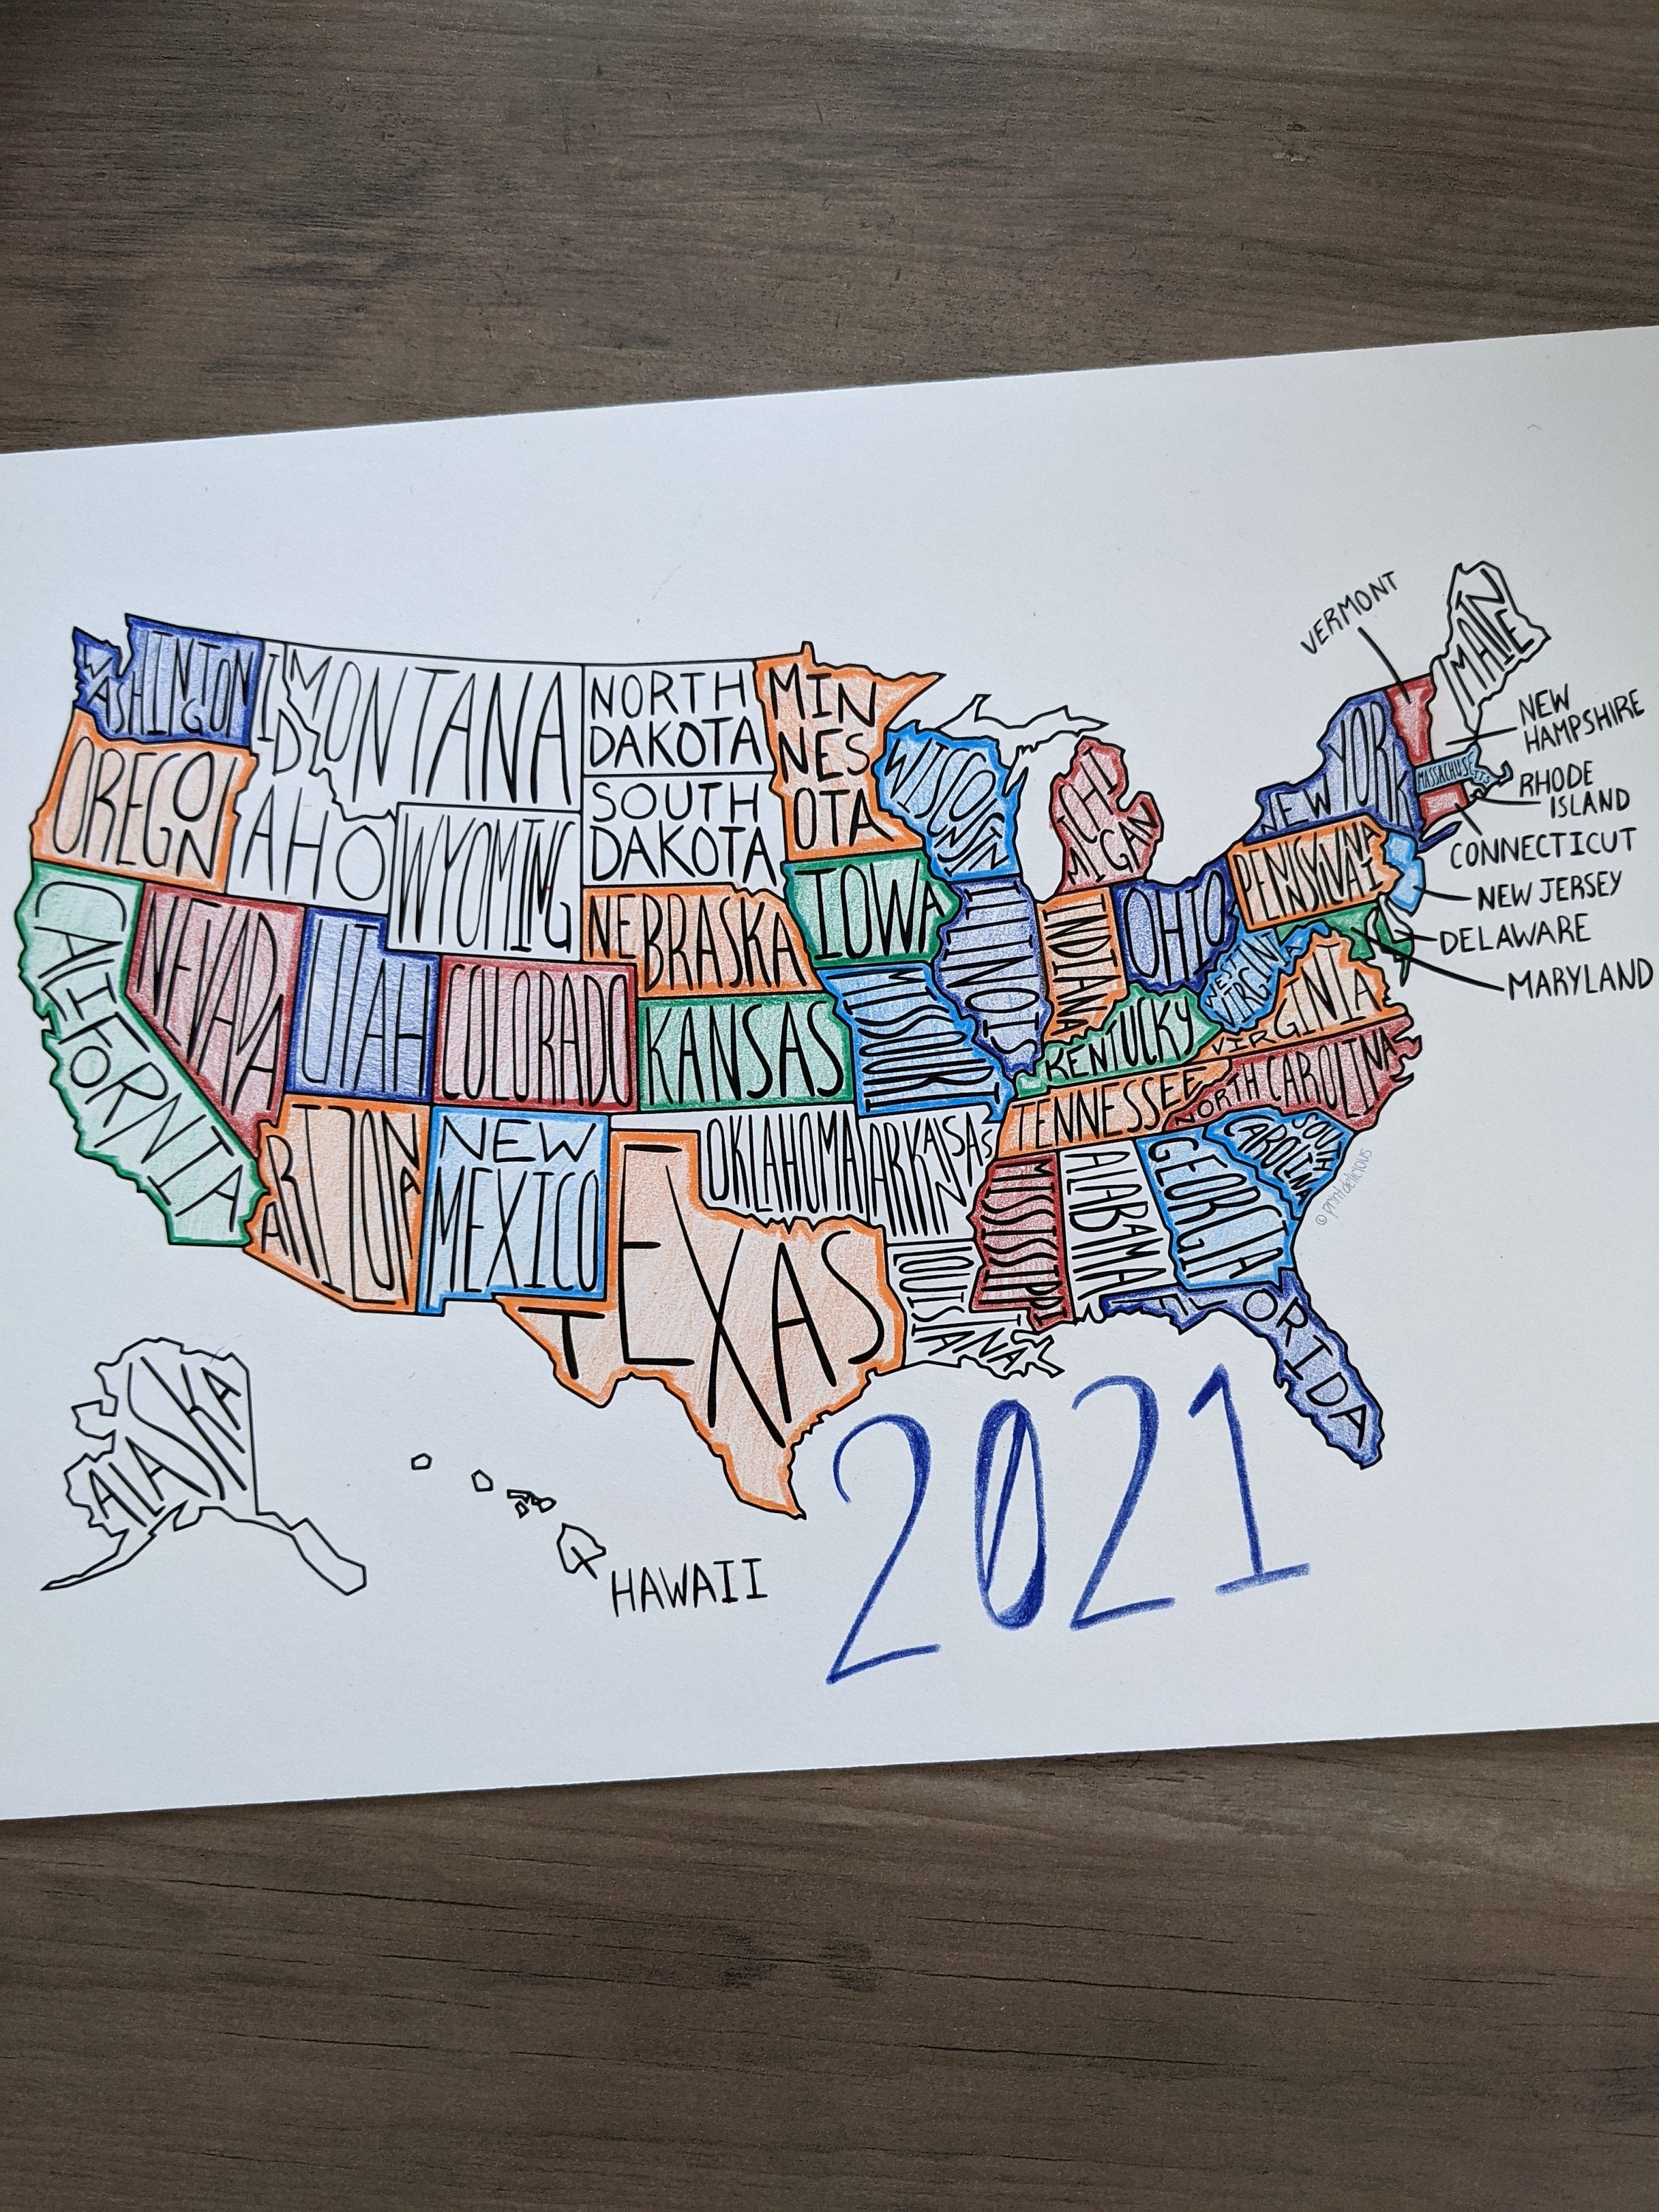 VERMONT
MAINE
NEW
HAMPSHIRE
MASSACHUSETTS
RHODE
ISLAND
CONNECTICUT
NEW JERSEY
DELAWARE
MARYLAND
WASHINGTON
IDAHO
MONTANA
NORTH
DAKOTA
MIN
NES
OTA
WISCONSIN
MICHIGAN
NEW YORK
OREGON
WYOMING
SOUTH
DAKOTA
IOWA
PENNSYLVANIA
CALIFORNIA
NEVADA
UTAH
COLORADO
NEBRASKA
KANSAS
MISSOURI
ILLINOIS
INDIANA
OHIO
WEST
VIRGINIA
VIRGINIA
KENTUCKY
TENNESSEE
NORTH CAROLINA
SOUTH
CAROLINA
ARIZONA
NEW
MEXICO
OKLAHOMA
ARKANSAS
TEXAS
LOUISIANA
MISSISSIPPI
ALABAMA
GEORGIA
FLORIDA
© printdelicious
ALASKA
HAWAII
2021